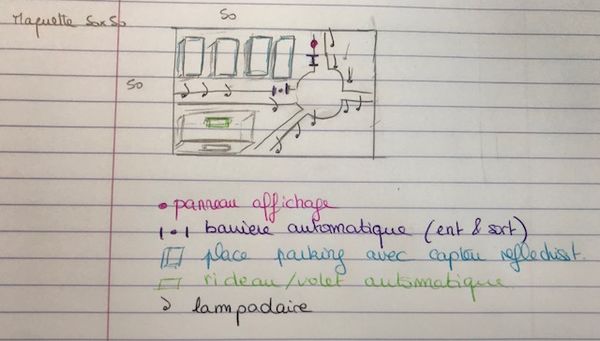 Maquette 50x50
50
50
panneau affichage
barrière automatique (ent & sort)
place parking avec capteur reflechist.
rideau/volet automatique
lampadaire